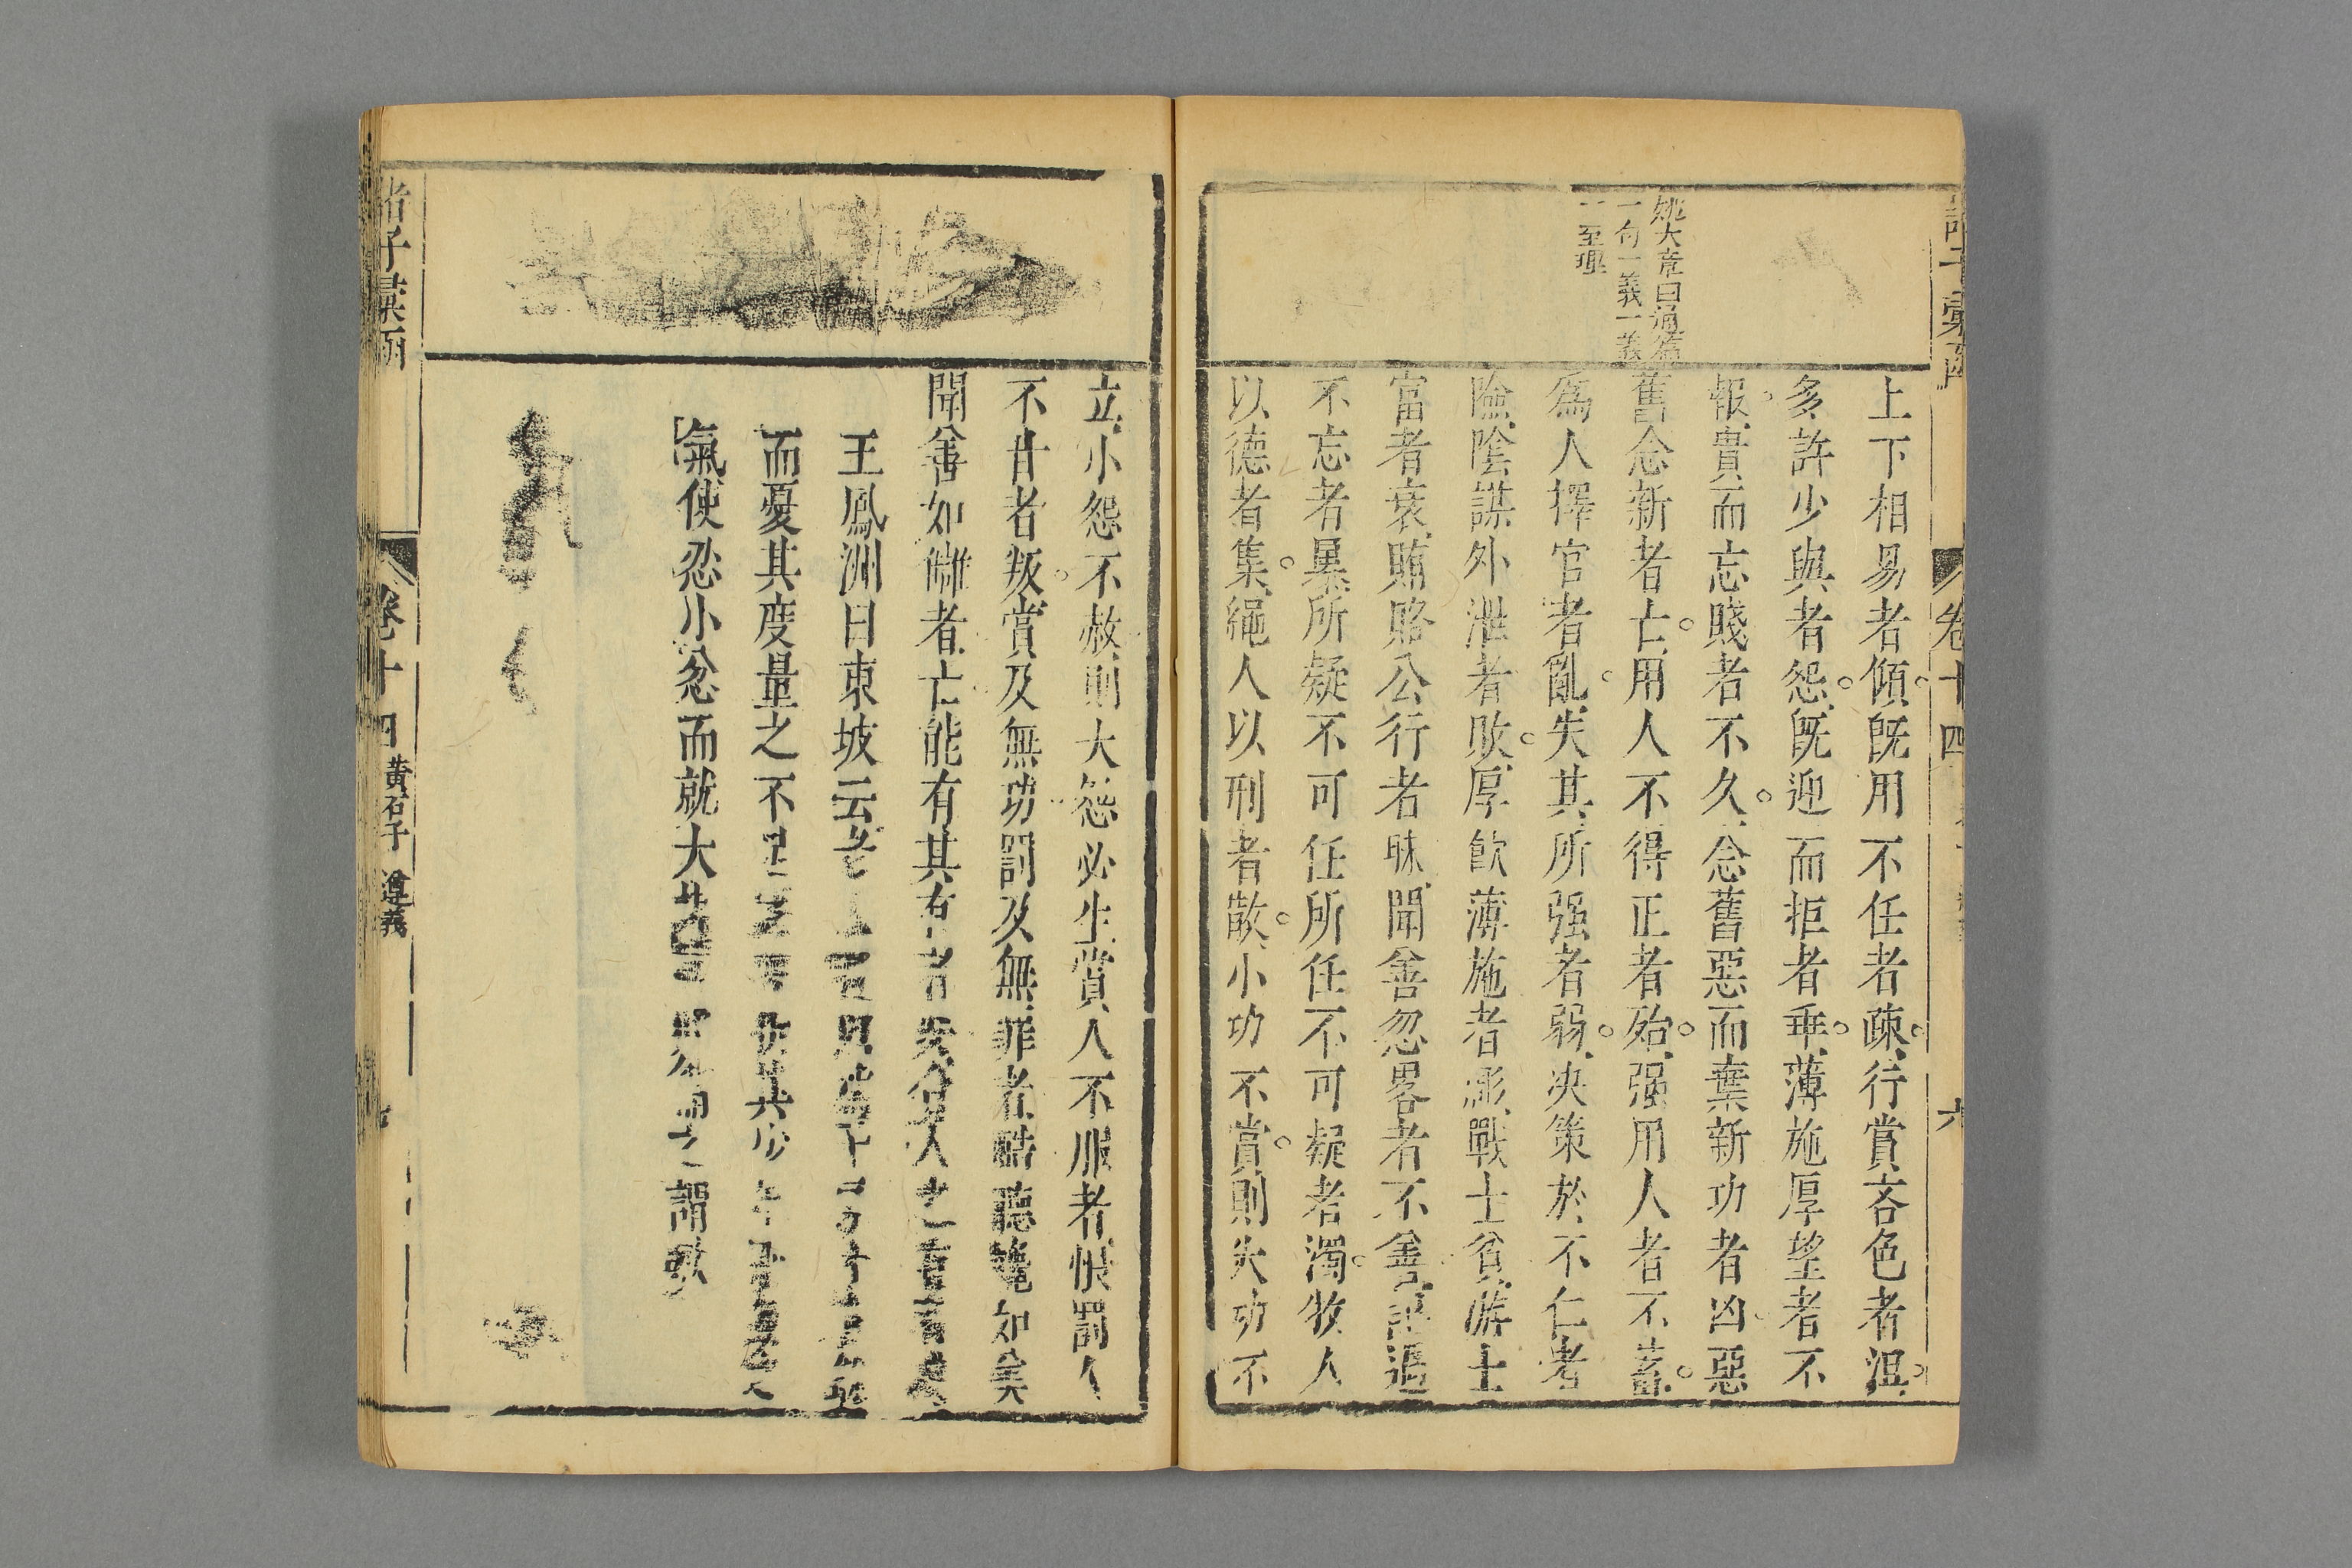 卷十四
六
姚大章曰通篇
一句一義一義
一至理
上下相易者傾既用不任者疎行賞吝色者沮
多許少與者怨既迎而拒者乖薄施厚望者不
報貴而忘賤者不久念舊惡而棄新功者凶惡
舊念新者亡用人不得正者殆强用人者不畜
爲人擇官者亂失其所强者弱决策於不仁者
險陰謀外泄者敗厚飲薄施者彫戰士貧游士
富者衰賄賂公行者昧聞善忽畧者不善記過
不忘者暴所疑不可任所任不可疑者濁牧人
以德者集繩人以刑者散小功不賞則大功不
立小怨不赦則大怨必生賞人不服者恨罰人
不甘者叛賞及無功罰及無罪者酷聽讒如美
聞善如讎者亡能有其有者安貪人之有者殘
王鳳洲曰東坡云老
而憂其度量之不 其少
氣使忍小忿而就大 謂歟
諸子彙函
卷十四
黄石子 遵義
七